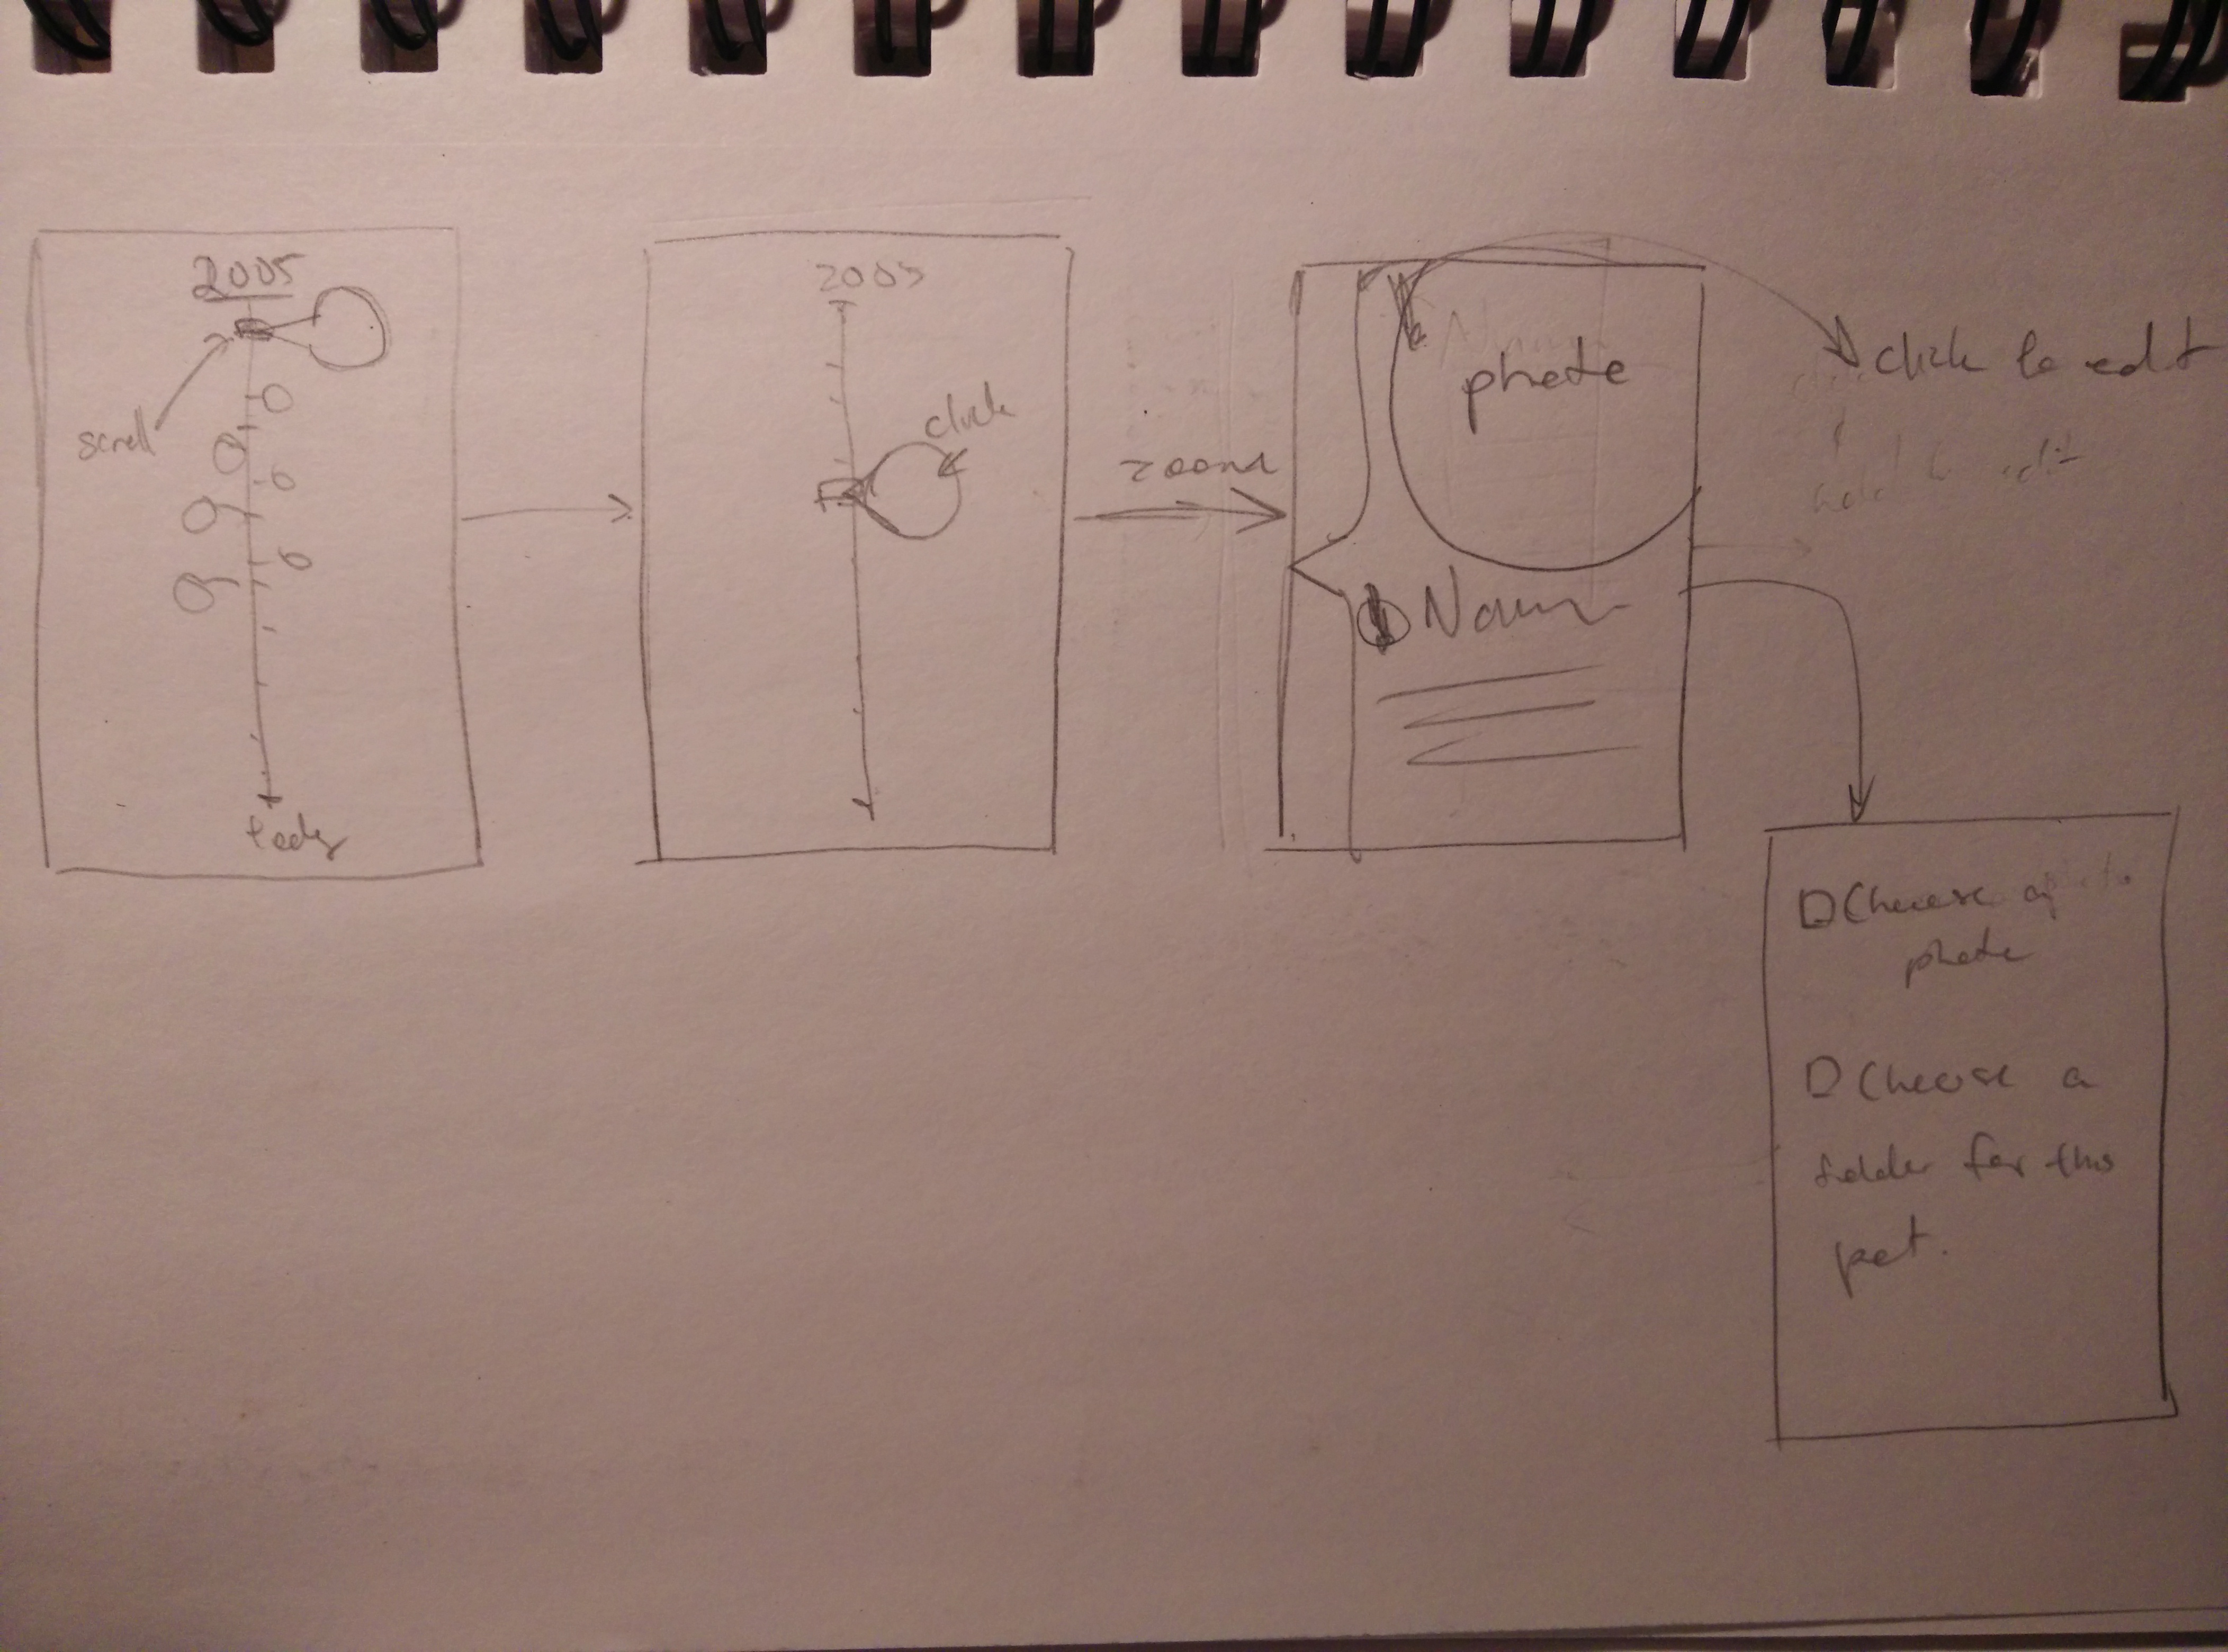 2005
scroll
today
2005
click
zoom
photo
Name
click to edit
hold to edit
Choose a
photo
Choose a
folder for this
pet.